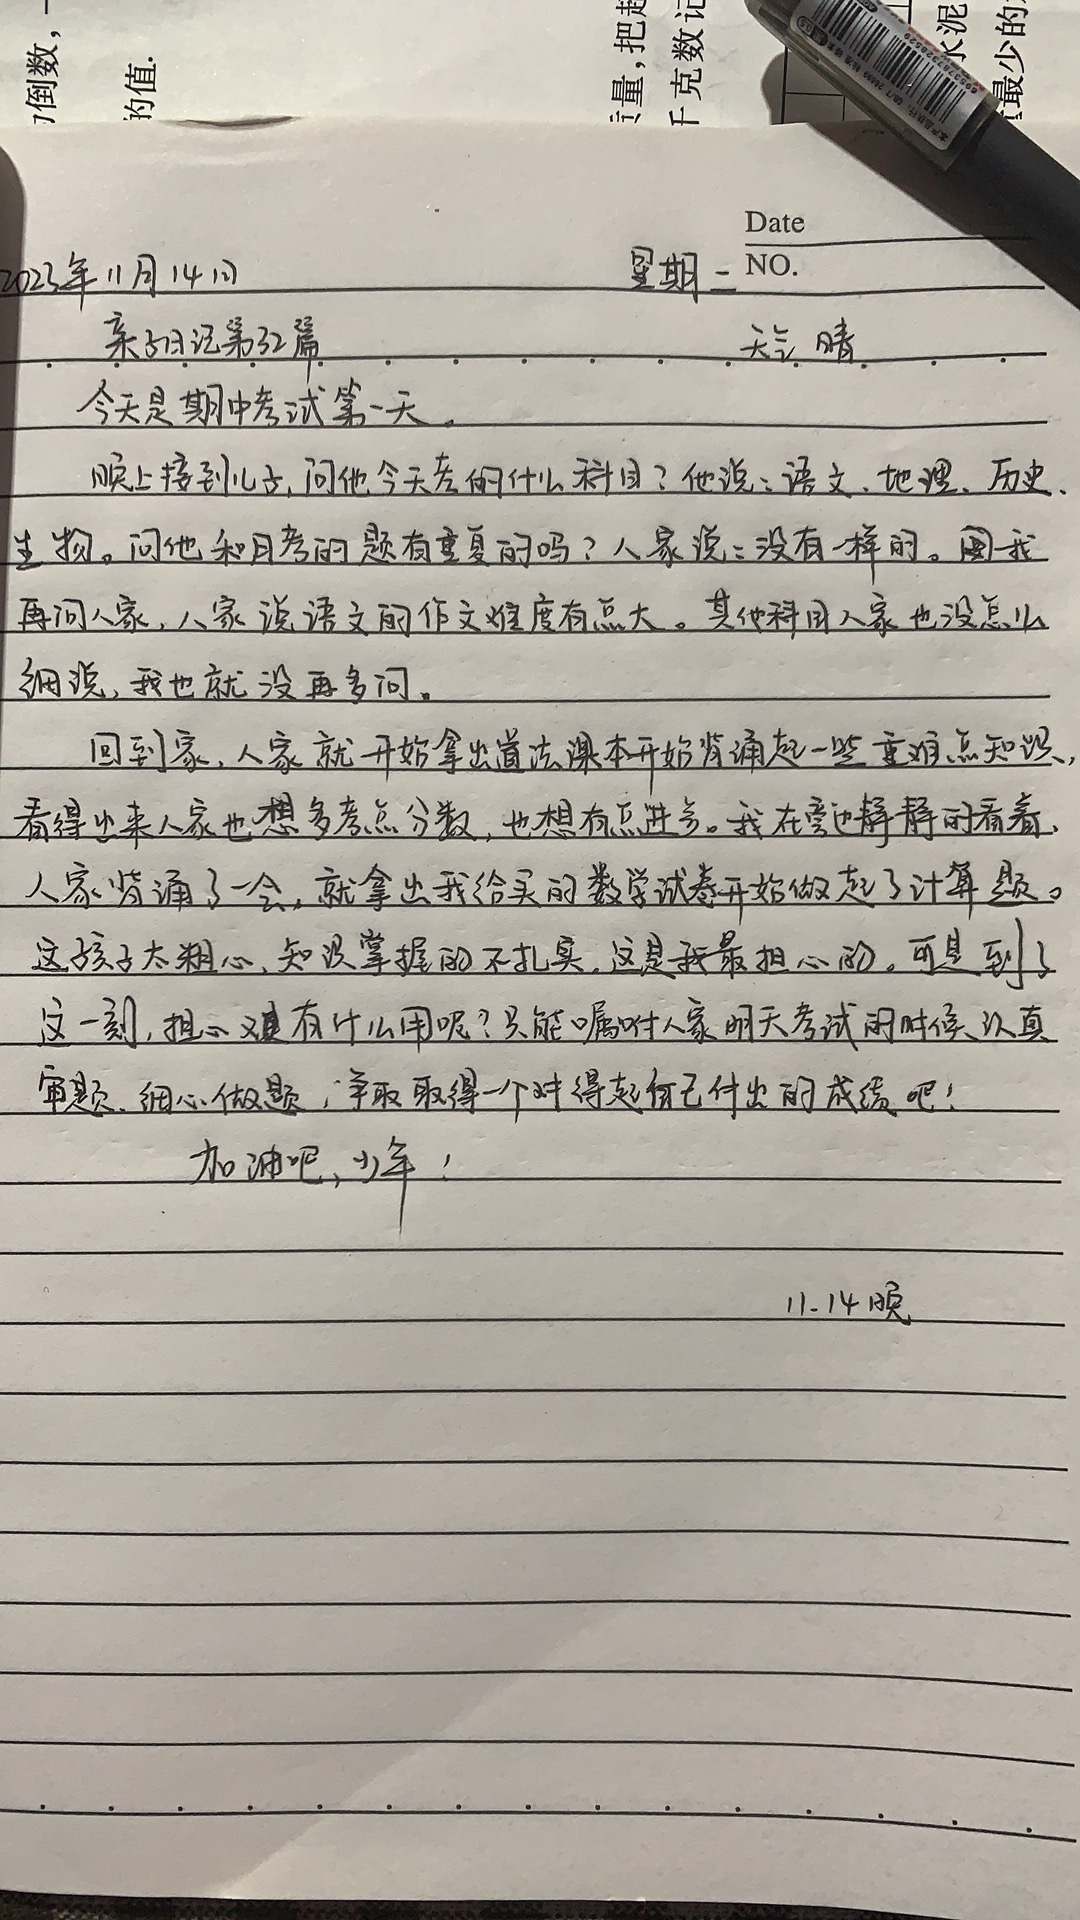 的倒数,
的值.
量,把超
千克数记
水泥
最少的
6953787328529
QB/T 26699
Date
NO.
2023年11月14日 星期二
亲子日记第32篇 天气 晴
今天是期中考试第一天。
晚上接到儿子,问他今天考的什么科目?他说:语文、地理、历史、
生物。问他和月考的题有重复的吗?人家说:没有一样的。
再问人家,人家说语文的作文难度有点大。其他科目人家也没怎么
细说,我也就没再多问。
回到家,人家就开始拿出道法课本开始背诵起一些重难点知识,
看得出来人家也想多考点分数,也想有点进步。我在旁边静静的看着,
人家背诵了一会,就拿出我给买的数学试卷开始做起了计算题。
这孩子太粗心,知识掌握的不扎实,这是我最担心的。可是到了
这一刻,担心又有什么用呢?只能嘱咐人家明天考试的时候认真
审题、细心做题,争取取得一个对得起自己付出的成绩吧!
加油吧,少年!
11.14晚